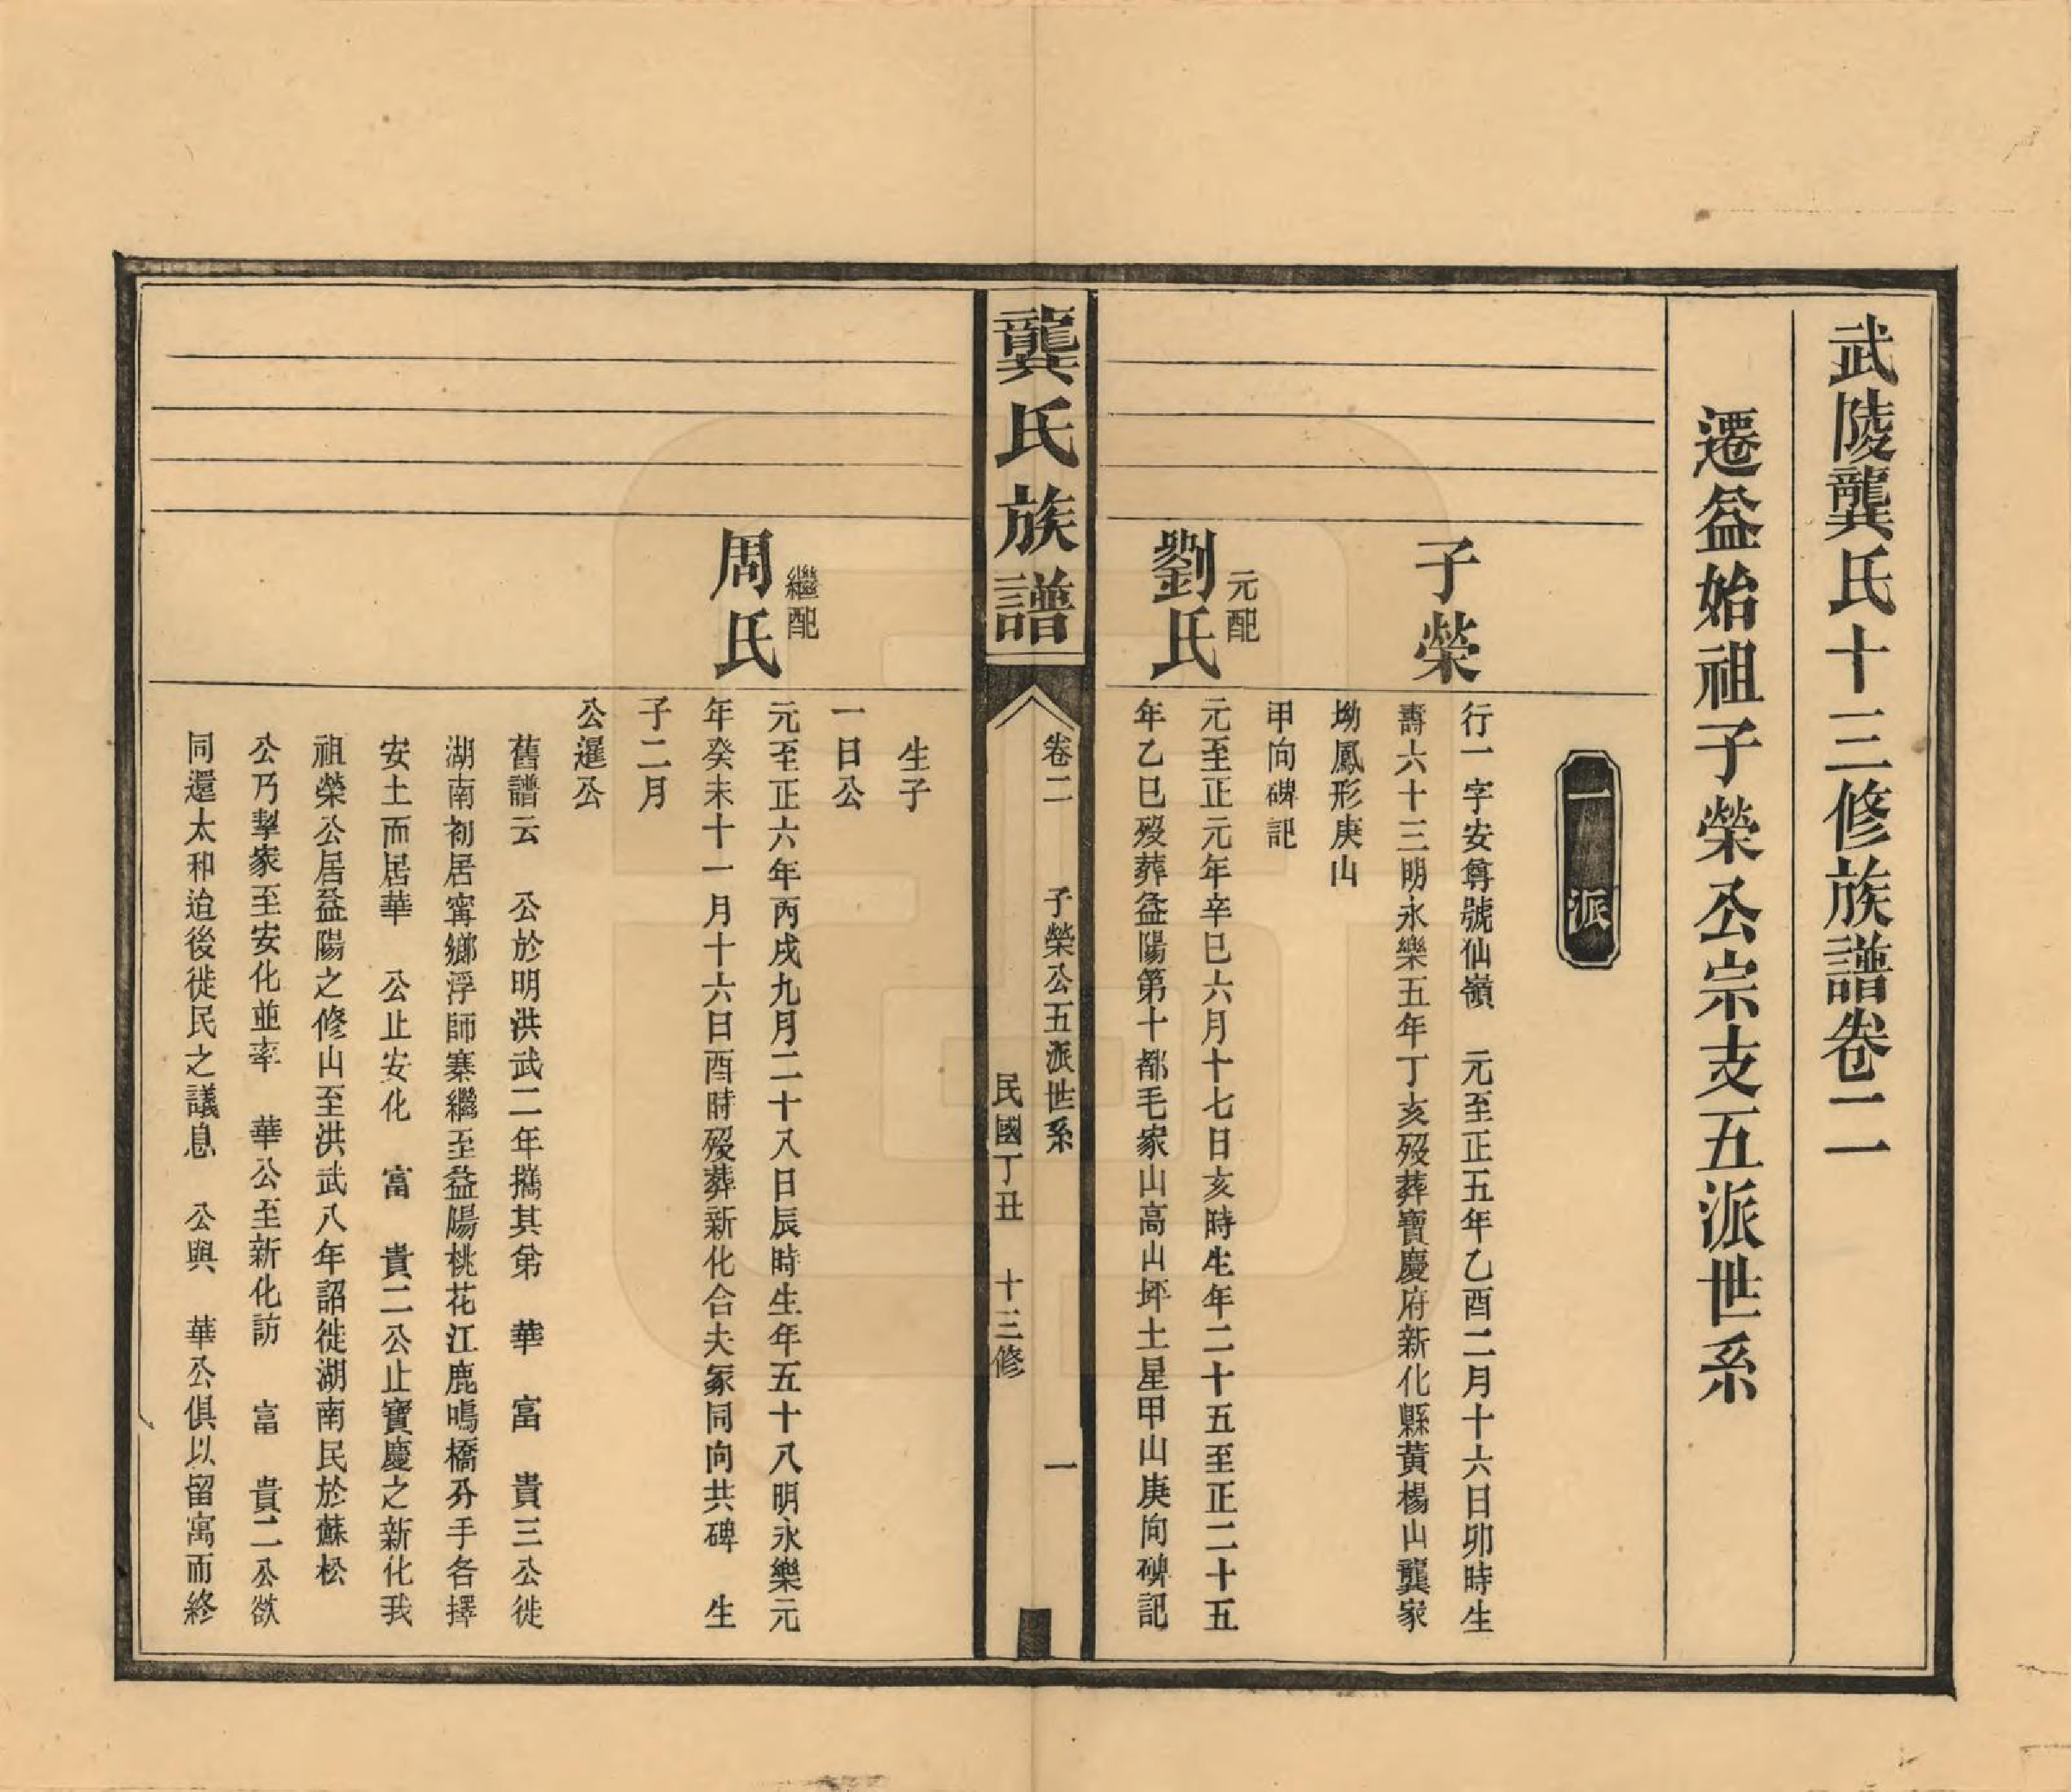 武陵龔氏十三修族譜卷二
遷益始祖子榮公宗支五派世系
一派
子榮
行一字安尊號仙嶺　元至正五年乙酉二月十六日卯時生
壽六十三明永樂五年丁亥歿葬寶慶府新化縣黃楊山龔家
坳鳳形庚山
甲向碑記
元配
劉氏
元至正元年辛巳六月十七日亥時生年二十五至正二十五
年乙巳歿葬益陽第十都毛家山高山坪土星甲山庚向碑記
龔氏族譜
卷二　子榮公五派世系　一
民國丁丑　十三修
生子
一日公
繼配
周氏
元至正六年丙戌九月二十八日辰時生年五十八明永樂元
年癸未十一月十六日酉時歿葬新化合夫冢同向共碑　生
子二月
公暹公
舊譜云　公於明洪武二年攜其弟　華　富　貴三公徙
湖南初居寗鄉浮師寨繼至益陽桃花江鹿鳴橋分手各擇
安土而居華　公止安化　富　貴二公止寶慶之新化我
祖榮公居益陽之修山至洪武八年詔徙湖南民於蘇松
公乃挈家至安化並率　華公至新化訪　富　貴二公欲
同還太和迨後徙民之議息　公與　華公俱以留寓而終